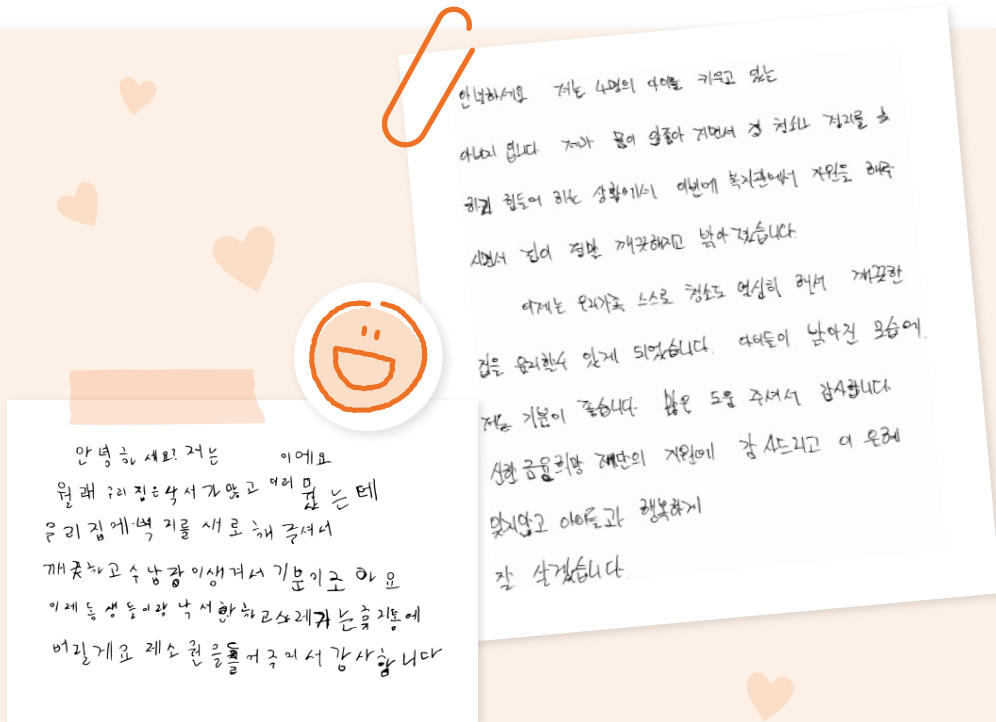 안녕하세요 저는 4명의 아이를 키우고 있는
아버지 입니다. 제가 몸이 안좋아 지면서 집 청소나 정리를 잘
하기 힘들어 하는 상황에서 이번에 복지관에서 지원을 해주
시면서 집이 정말 깨끗해지고 밝아 졌습니다.
이제는 우리가족 스스로 청소도 열심히 해서 깨끗한
집을 유지할수 있게 되었습니다. 아이들이 밝아진 모습에
저도 기분이 좋습니다. 많은 도움 주셔서 감사합니다.
신한금융희망 재단의 지원에 감사드리고 이 은혜
잊지않고 아이들과 행복하게
잘 살겠습니다.
안녕하세요? 저는 이에요
원래 우리 집은낙서가많고 더러 웠는데
우리집에벽 지를 새로 해 주셔서
깨끗하고 수납장이생겨서 기분이조아요
이제동생들이랑 낙서안하고쓰레기는휴지통에
버릴게요 제소원을들어주셔서 감사합니다